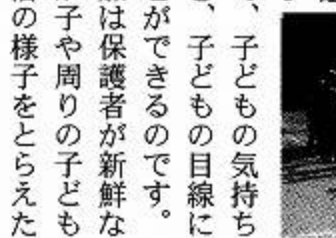 、子どもの気持ち
、子どもの目線に
とができるのです。
は保護者が新鮮な
子や周りの子ども
の様子をとらえた